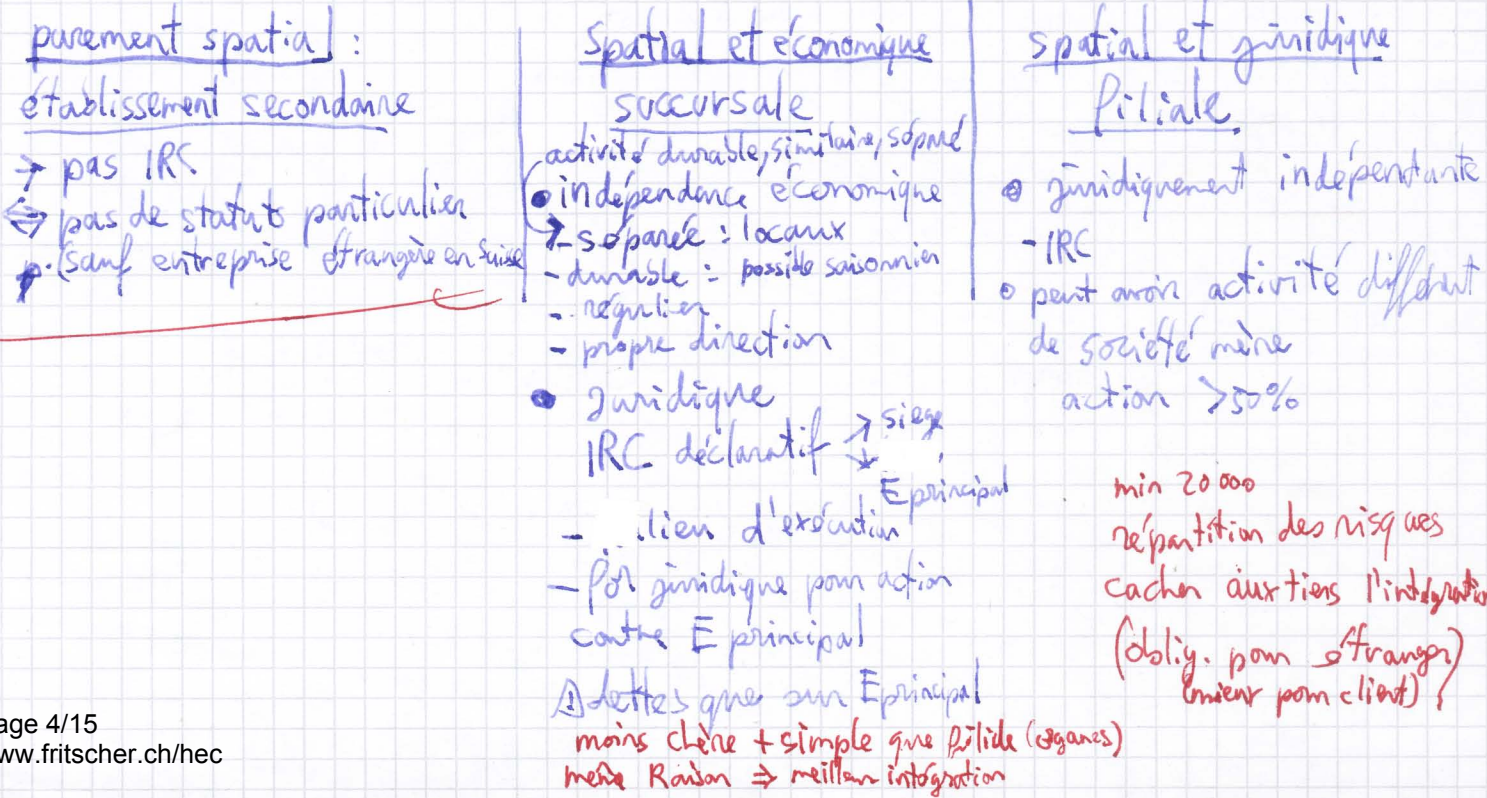 purement spatial :
établissement secondaire
→ pas IRC
⇔ pas de statuts particulier
p. (sauf entreprise étrangère en Suisse
Spatial et économique
succursale
activité durable, similaire, séparé
• indépendance économique
- séparée : locaux
- durable = possible saisonnier
- régulier
- propre direction
• Juridique
IRC déclaratif ↗ siege
↘ E principal
- lieu d'exécution
- for juridique pour action
contre E principal
⚠ dettes que sur E principal
moins chère + simple que filiale (organes)
même Raison ⇒ meilleur intégration
spatial et juridique
filiale
• juridiquement indépendante
- IRC
• peut avoir activité différent
de société mère
action >50%
min 20 000
répartition des risques
cacher aux tiers l'intégration
(oblig. pour étranger)
(mieux pour client)
age 4/15
ww.fritscher.ch/hec